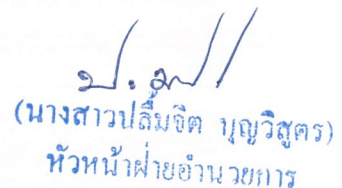 (นางสาวปลื้มจิต บุญวิสูตร)
หัวหน้าฝ่ายอำนวยการ